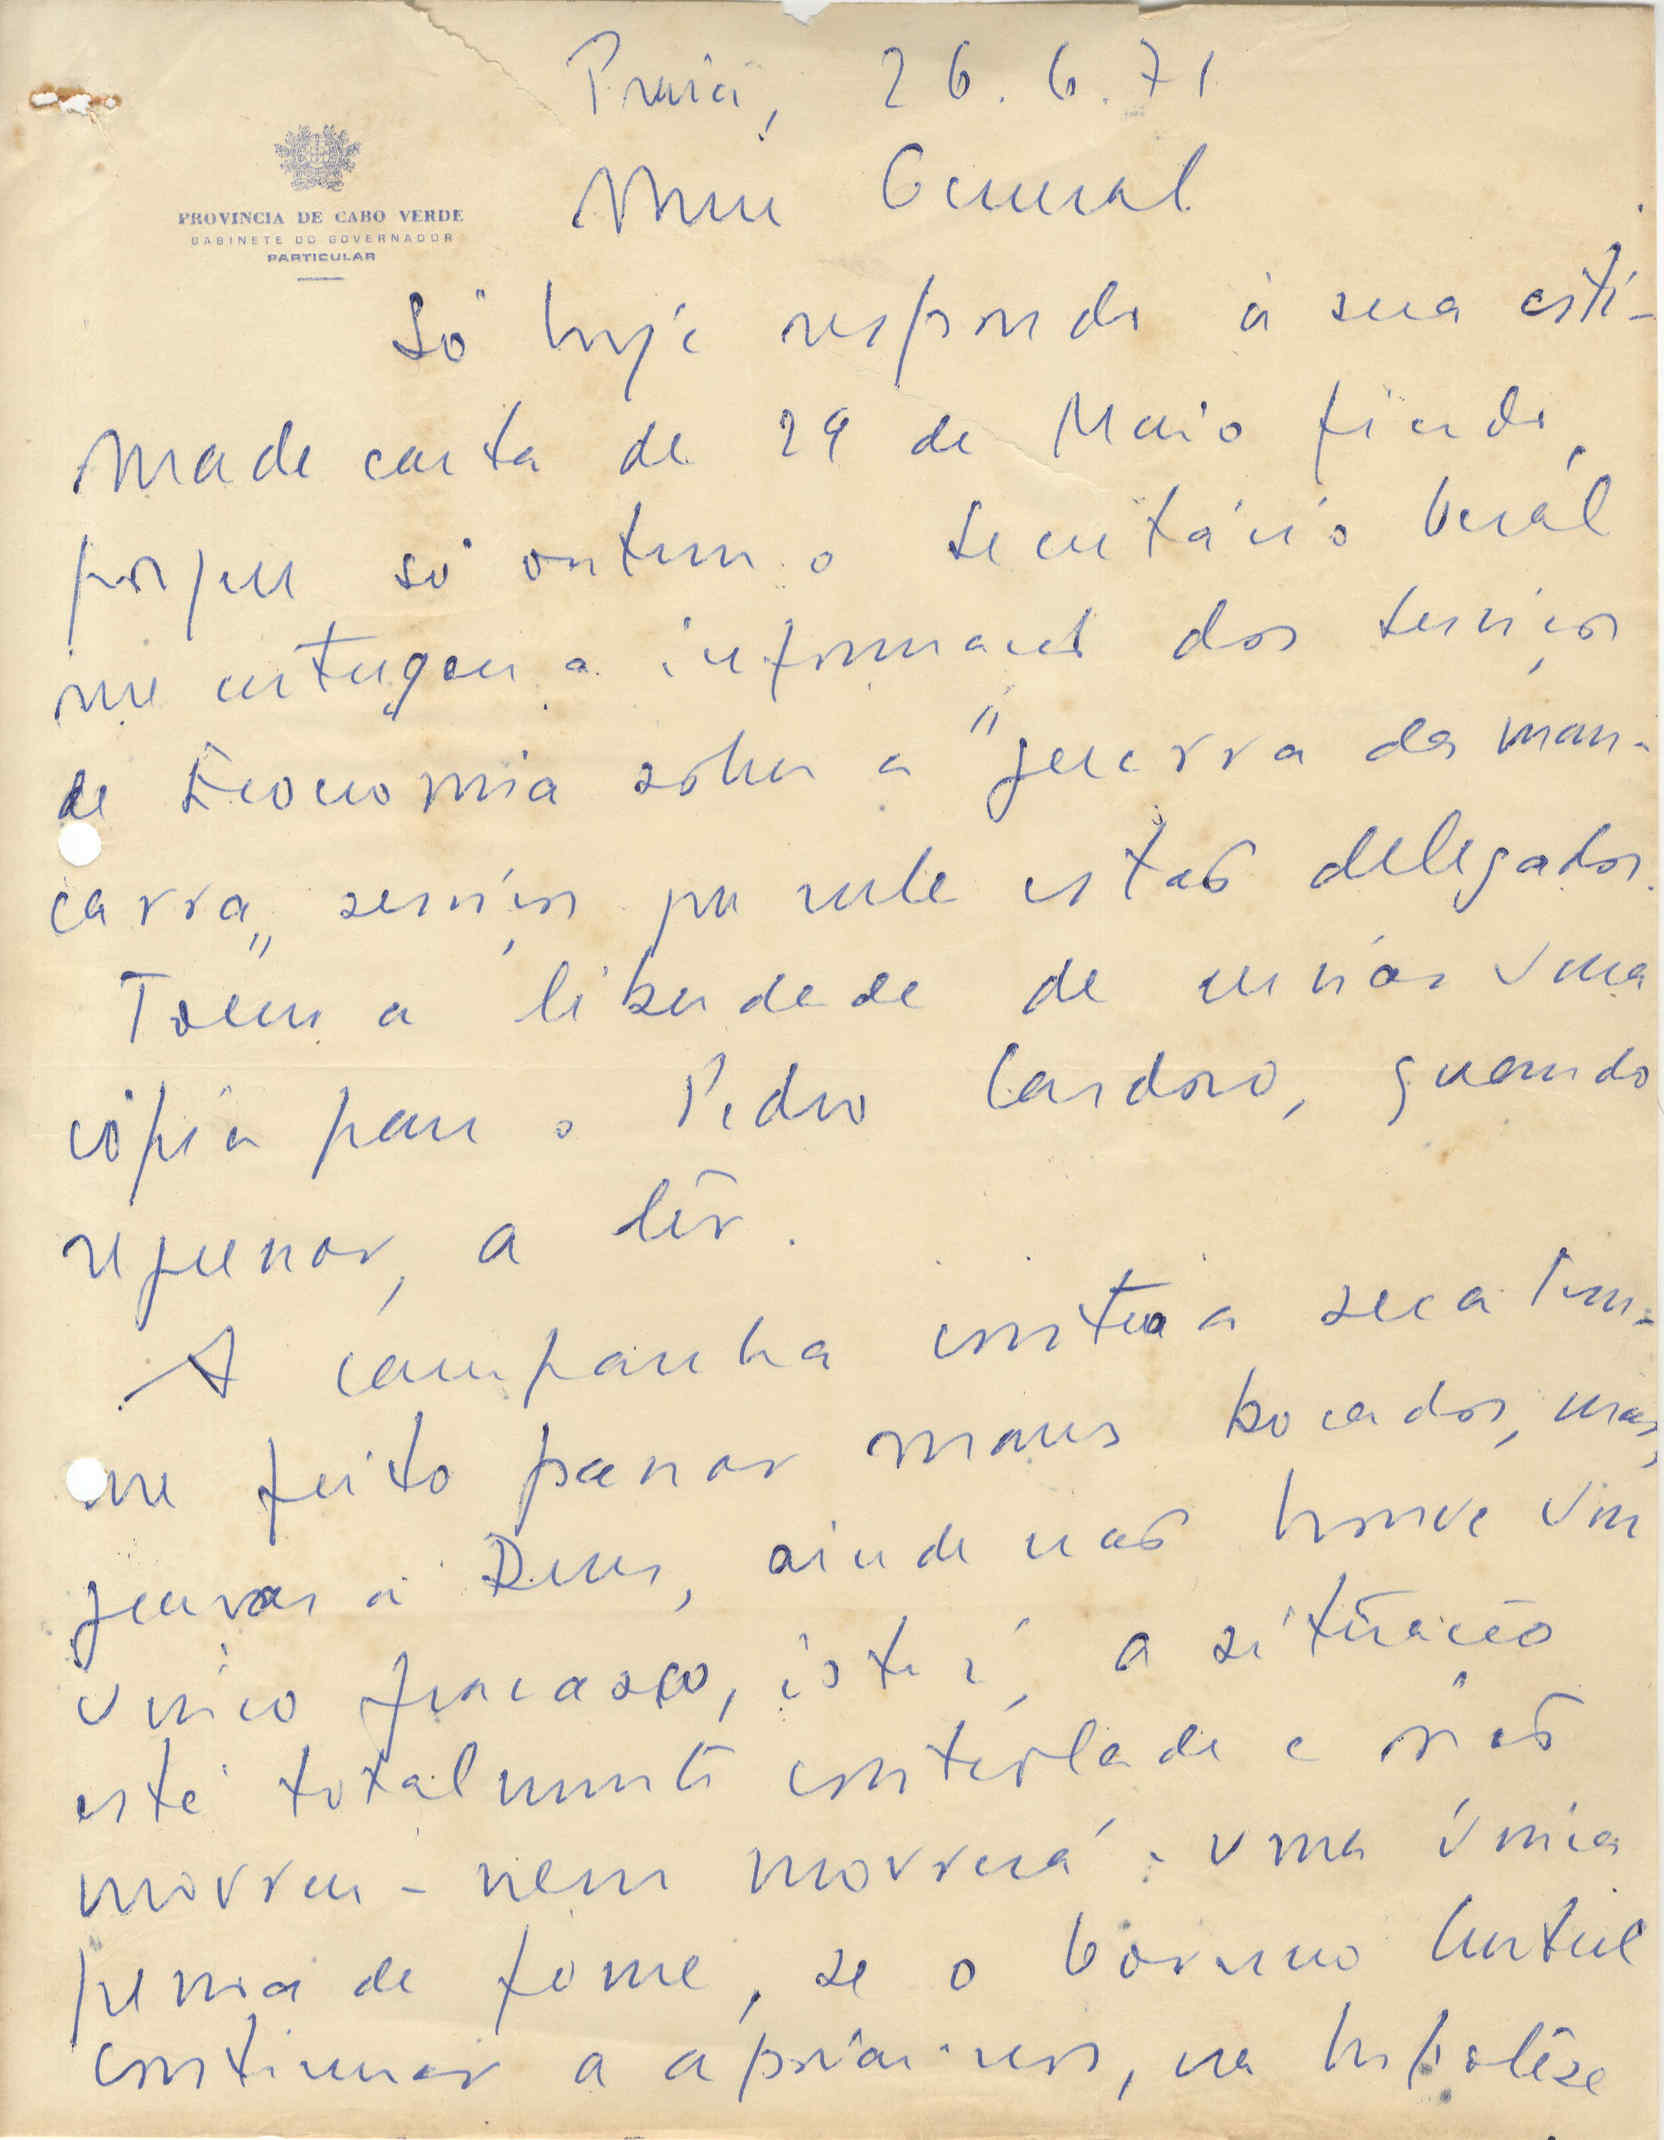 Praia, 26.6.71
PROVINCIA DE CABO VERDE
GABINETE DO GOVERNADOR
PARTICULAR
Meu General
Só hoje respondo à sua esti-
mada carta de 29 de Maio findo,
porque só ontem o Secretário Geral
me entregou a informação dos serviços
de Economia sobre a "guerra da man-
carra" serviços que nele estão delegados.
Tomei a liberdade de enviar uma
cópia para o Pedro Cardoso, quando
regressar, a lêr.
A campanha contra a seca tem-
me feito passar maus bocados, mas,
graças a Deus, ainda não houve um
único fracasso, isto é, a situação
está totalmente controlada e não
morreu - nem morrerá - uma única
pessoa de fome, se o Governo Central
continuar a apoiar-nos, na hipotese